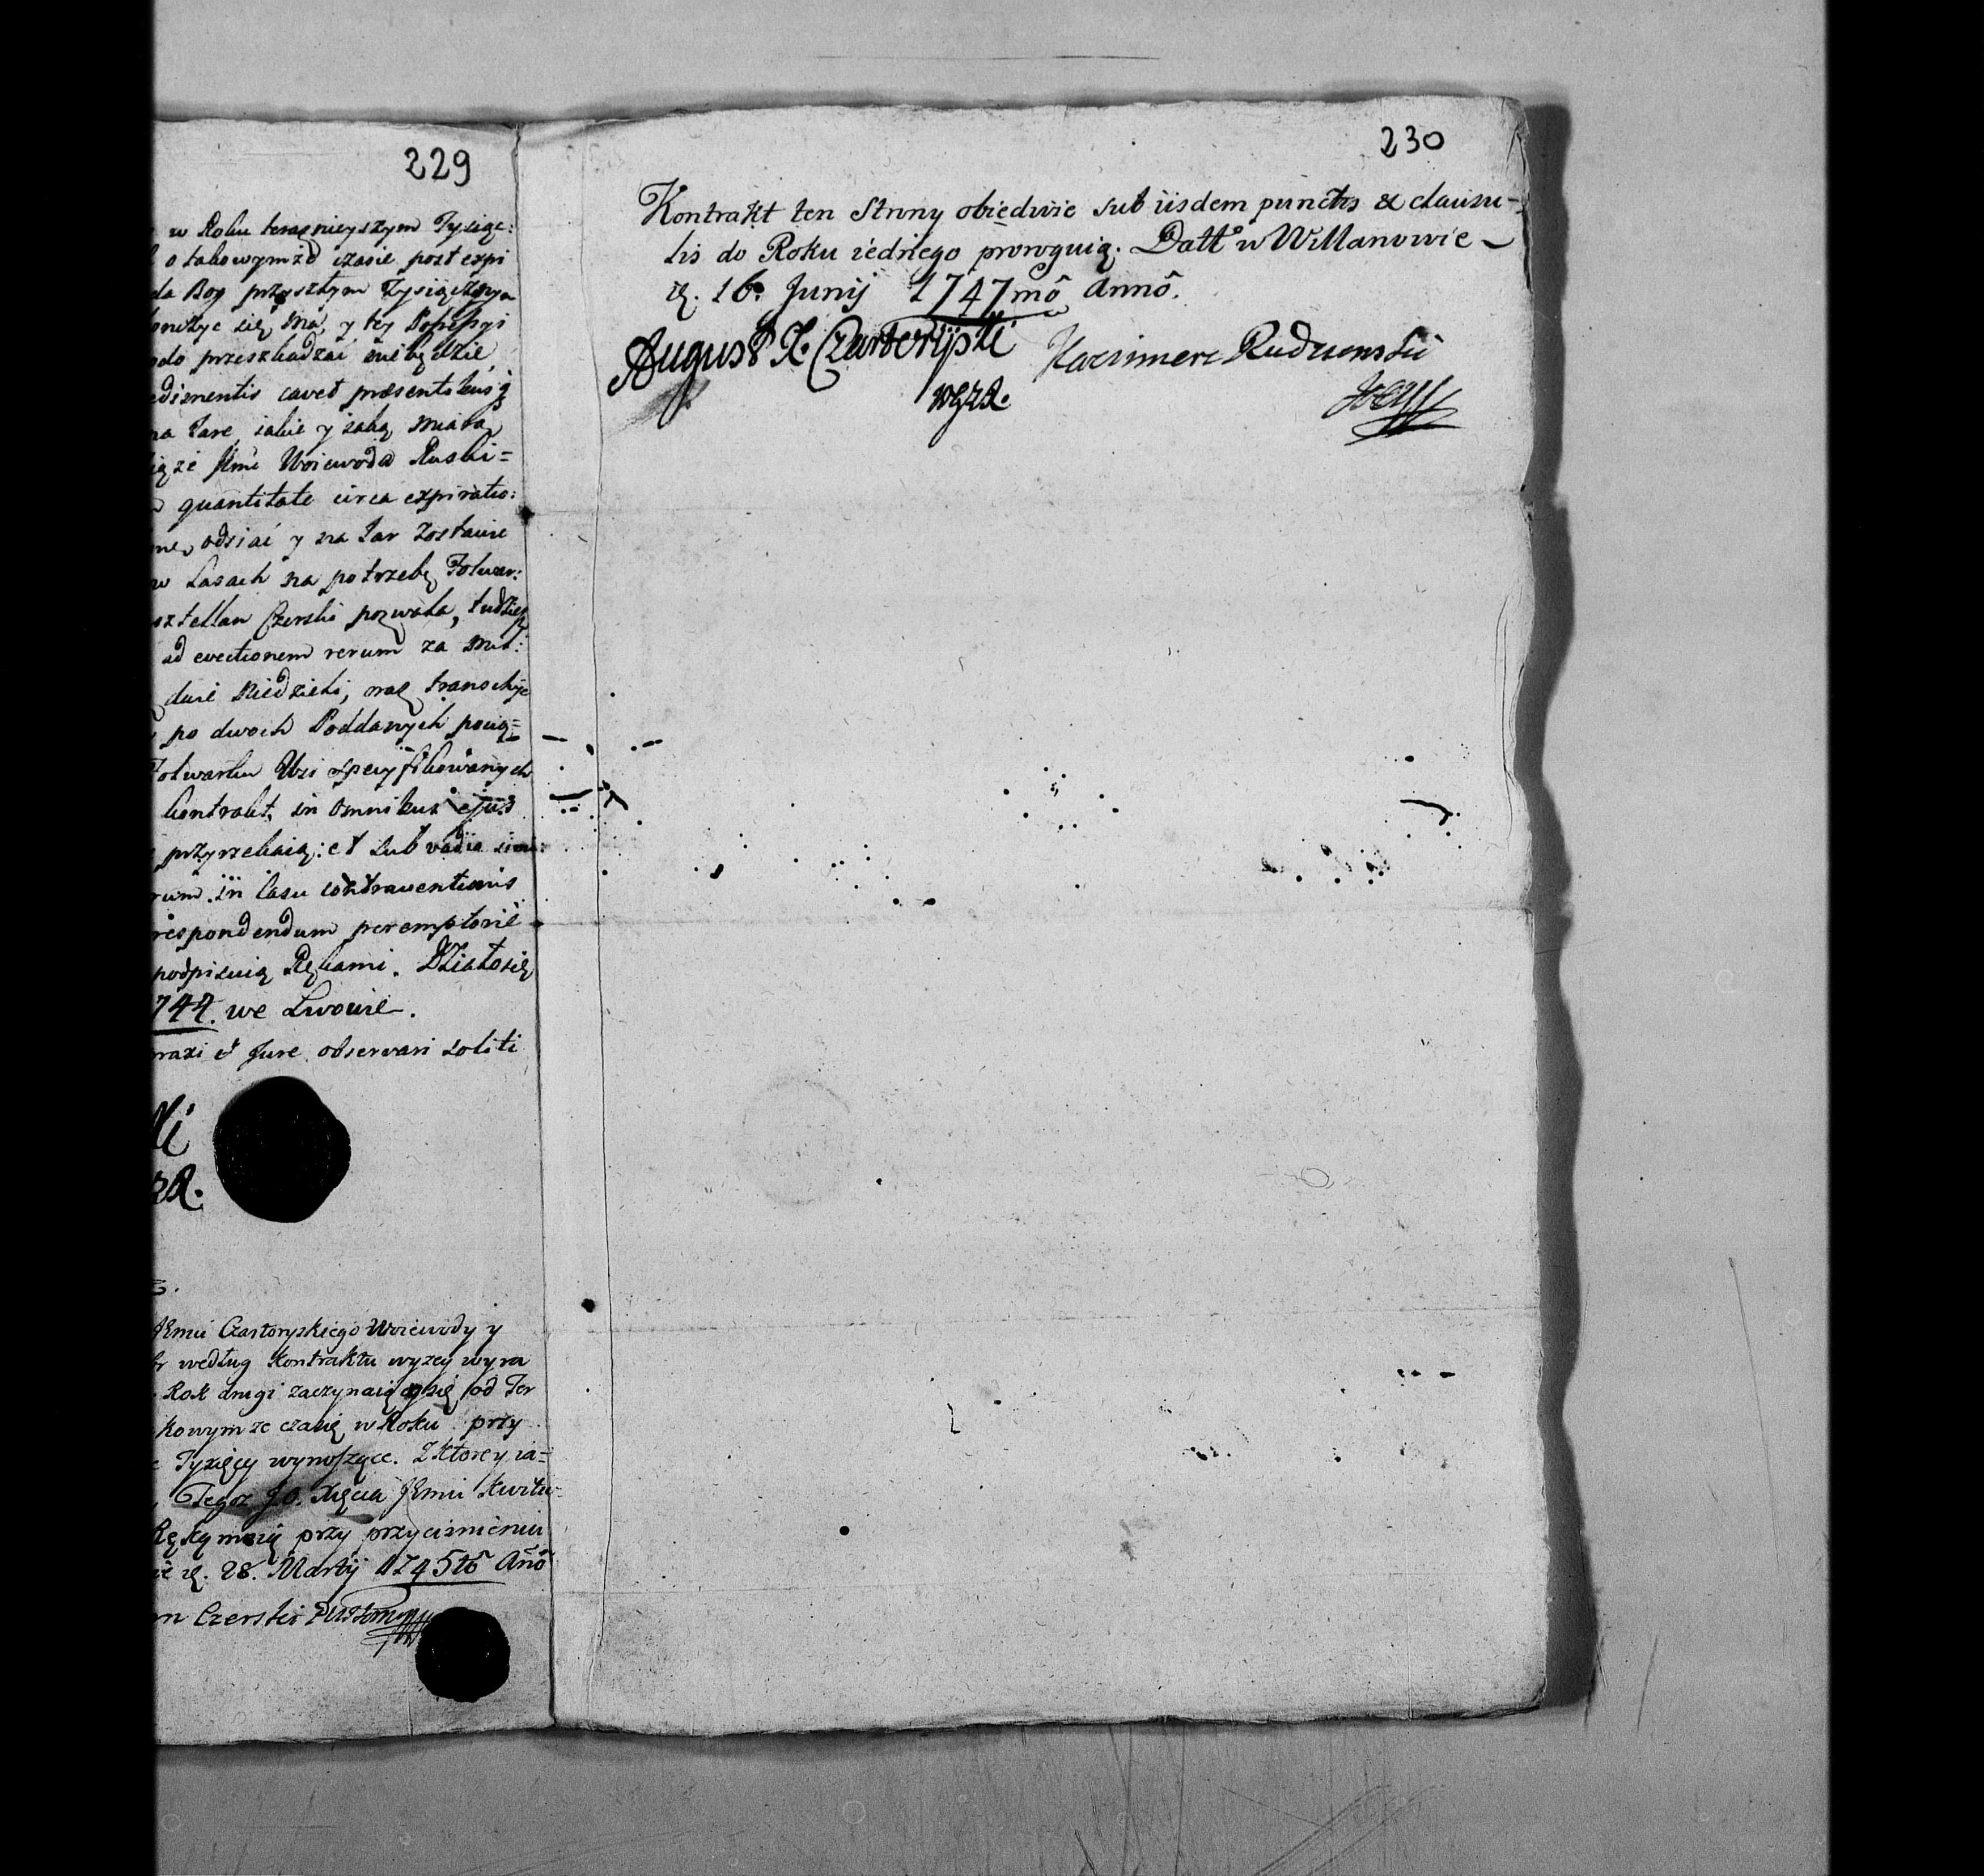 229
w Roku teraznieyszym Tysiąc:
o takowymże czasie post expi
da Bog przyszłym Tysiącznym
kończyc się ma, y tey Possessyi
przeszkadzać niebędzie
edimentis cavet præsentibus
na Jare, iakie y iaką miarą
iąże Jmć Woiewoda Ruski=
quantitate circa expiratio:
odsiać y na Jar zostawie
w Lasach na potrzebę Folwar:
sztellan Czerski pozwala, tudziesz
ad evectionem rerum za
dwie Niedzieli, oraz
po dwoch Poddanych pocią=
Folwarku Wsi specyfikowanych
kontrakt in omnibus ejus
przyrzekaią: et sub vadio simi:
rum. in casu contraventionis
respondendum peremptorie
podpisuią Rękami. Działosię
744. we Lwowie.
praxi et Jure observari soliti
ki
zR.
Jmci Czartoryskiego Woiewody y
według Kontraktu wyzey wyra
Rok drugi zaczynaiący się od Ter
kowym ze czasie w Roku przy
Tysięcy wynoszące. Z ktorey ia=
Tegoz J.O. Xięcia Jmci kwitu=
Ręką moią przy przycisnieniu
d. 28. Martij 1745tô Anô
n Czerski
230
Kontrakt ten Strony obiedwie sub iisdem punctis & clausu-
lis do Roku iednego proroguią. Datt° w Willanowie
d. 16. Junij 1747mô Annô.
August X. Czartoryski Kazimierz Rudzienski
WGZR.